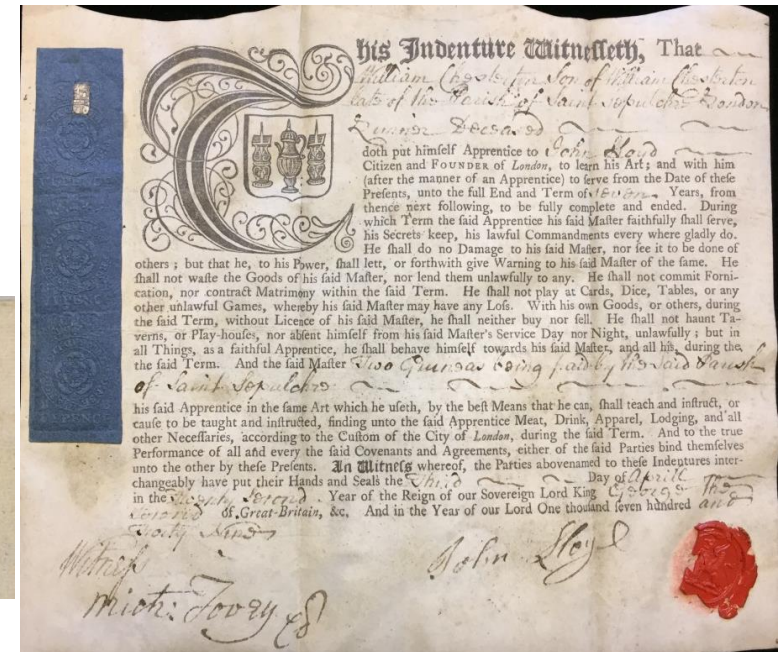 This Indenture Witnesseth, That
William Chesterton Son of William Chesterton
late of the Parish of Saint Sepulchre London
Deceased
doth put himself Apprentice to John Lloyd
Citizen and FOUNDER of London, to learn his Art; and with him
(after the manner of an Apprentice) to serve from the Date of these
Presents, unto the full End and Term of seven Years, from
thence next following, to be fully complete and ended. During
which Term the said Apprentice his said Master faithfully shall serve,
his Secrets keep, his lawful Commandments every where gladly do.
He shall do no Damage to his said Master, nor see it to be done of
others; but that he, to his Power, shall lett, or forthwith give Warning to his said Master of the same. He
shall not waste the Goods of his said Master, nor lend them unlawfully to any. He shall not commit Forni-
cation, nor contract Matrimony within the said Term. He shall not play at Cards, Dice, Tables, or any
other unlawful Games, whereby his said Master may have any Loss. With his own Goods, or others, during
the said Term, without Licence of his said Master, he shall neither buy nor sell. He shall not haunt Ta-
verns, or Play-houses, nor absent himself from his said Master's Service Day nor Night, unlawfully; but in
all Things, as a faithful Apprentice, he shall behave himself towards his said Master, and all his, during the
the said Term. And the said Master Two Guineas being paid by the said Parish
of Saint Sepulchre
his said Apprentice in the same Art which he useth, by the best Means that he can, shall teach and instruct, or
cause to be taught and instructed, finding unto the said Apprentice Meat, Drink, Apparel, Lodging, and all
other Necessaries, according to the Custom of the City of London, during the said Term. And to the true
Performance of all and every the said Covenants and Agreements, either of the said Parties bind themselves
unto the other by these Presents. In Witness whereof, the Parties abovenamed to these Indentures inter-
changeably have put their Hands and Seals the Third Day of Aprill
in the Twenty Second Year of the Reign of our Sovereign Lord King George the
Second of Great-Britain, &c. And in the Year of our Lord One thousand seven hundred and
Forty Nine
John Lloyd
Witness
Mich: Tovey